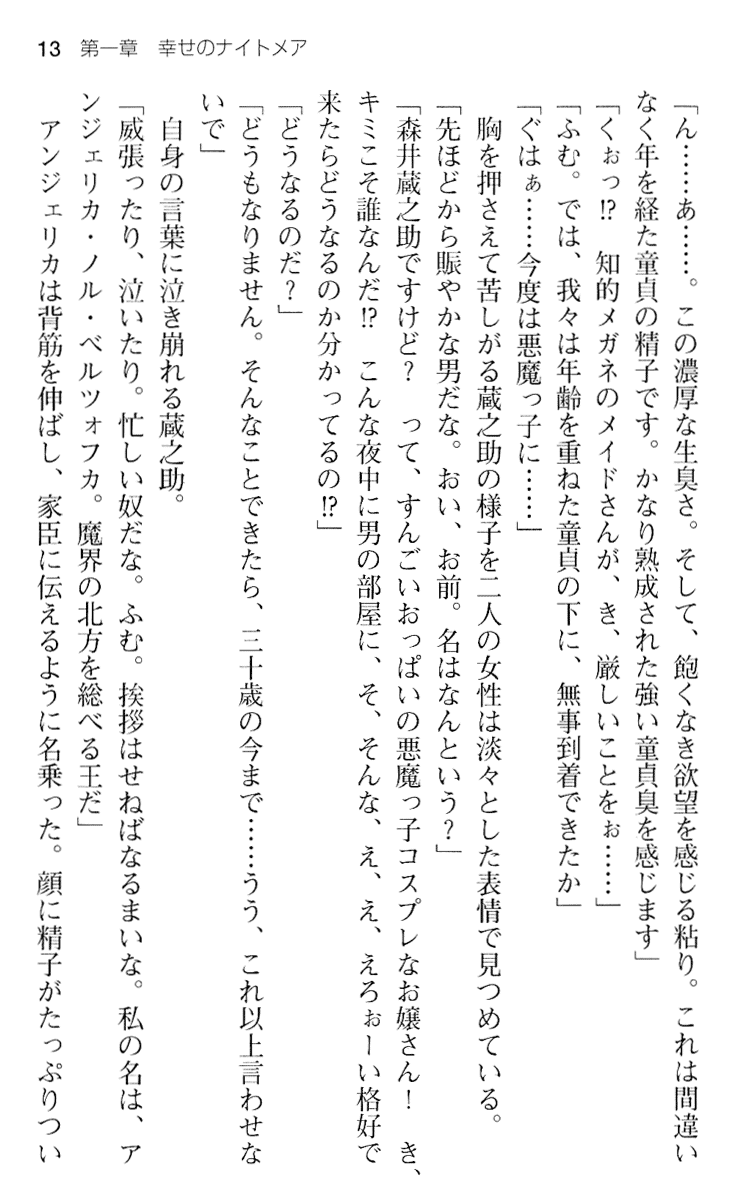 13 第一章 幸せのナイトメア
「ん……あ……。この濃厚な生臭さ。そして、飽くなき欲望を感じる粘り。これは間違い
なく年を経た童貞の精子です。かなり熟成された強い童貞臭を感じます」
「くぉっ!? 知的メガネのメイドさんが、き、厳しいことをぉ……」
「ふむ。では、我々は年齢を重ねた童貞の下に、無事到着できたか」
「ぐはぁ……今度は悪魔っ子に……」
　胸を押さえて苦しがる蔵之助の様子を二人の女性は淡々とした表情で見つめている。
「先ほどから賑やかな男だな。おい、お前。名はなんという？」
「森井蔵之助ですけど？　って、すんごいおっぱいの悪魔っ子コスプレなお嬢さん！　き、
キミこそ誰なんだ!?　こんな夜中に男の部屋に、そ、そんな、え、え、えろぉーい格好で
来たらどうなるのか分かってるの!?」
「どうなるのだ？」
「どうもなりません。そんなことできたら、三十歳の今まで……うう、これ以上言わせな
いで」
　自身の言葉に泣き崩れる蔵之助。
「威張ったり、泣いたり。忙しい奴だな。ふむ。挨拶はせねばなるまいな。私の名は、ア
ンジェリカ・ノル・ベルツォフカ。魔界の北方を総べる王だ」
　アンジェリカは背筋を伸ばし、家臣に伝えるように名乗った。顔に精子がたっぷりつい